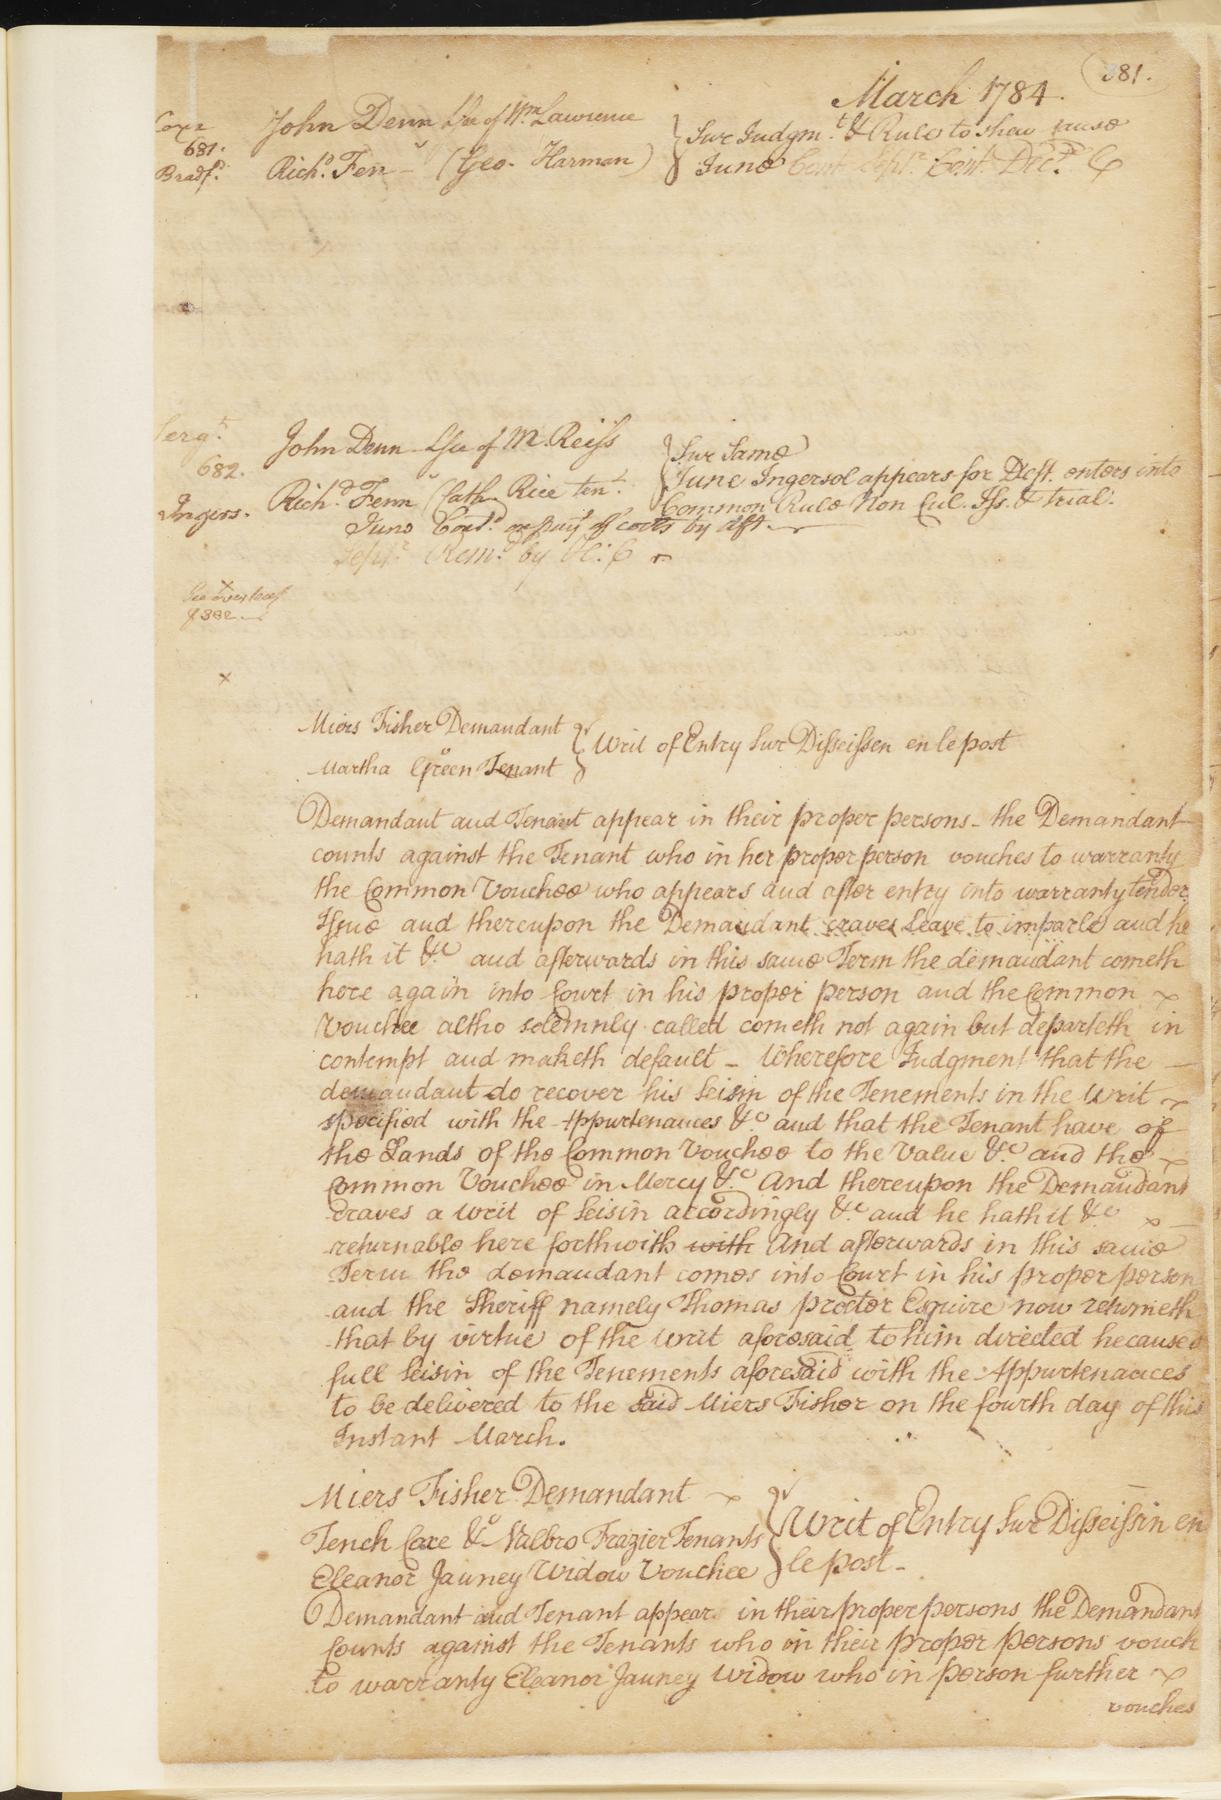 381.
March 1784.
Coxe John Denn Lsee of Wm. Lawrence } Sur Judgmt. & Rule to shew cause
681.
Bradfd. Richd. Fen - (Geo. Harman) June Cont. Sept. Cont. Decr. C
Sergt. John Denn Lsee of M. Reiss } Sur Same
682. June Ingersol appears for Deft. enters into
Ingers. Richd. Fenn (Cath. Rice tent. Common Rule Non Cul. Iss. & trial.
June Contd. on payt. of costs by dft.
Sept. Remd. by C
See overleaf
p 382.
x
Miers Fisher Demandant } Writ of Entry Sur Disseissen en le post
Martha Green Tenant
Demandant and Tenant appear in their proper persons - the Demandant
counts against the Tenant who in her proper person vouches to warranty
the Common Vouchee who appears and after entry into warranty tender
Issue and thereupon the Demandant craves leave to imparle and he
hath it &c. and afterwards in this same Term the demandant cometh
here again into Court in his proper person and the Common
Vouchee altho solemnly called cometh not again but departeth in
contempt and maketh default - Wherefore Judgment that the
demandant do recover his Seisin of the Tenements in the Writ
specified with the Appurtenances &c. and that the Tenant have of
the Lands of the Common Vouchee to the Value &c. and the
Common Vouchee in Mercy &c. And thereupon the Demandant
craves a Writ of Seisin accordingly &c. and he hath it &c.
returnable here forthwith with And afterwards in this same
Term the demandant comes into Court in his proper person
and the Sheriff namely Thomas Proctor Esquire now returneth
that by virtue of the Writ aforesaid to him directed he caused
full Seisin of the Tenements aforesaid with the Appurtenances
to be delivered to the said Miers Fisher on the fourth day of this
Instant March.
Miers Fisher Demandant
Tench Coxe & Nalbro Frazier Tenants } Writ of Entry Sur Disseissin en
Eleanor Jauney Widow Vouchee le post -
Demandant and Tenant appear in their proper persons the Demandant
Counts against the Tenants who in their proper persons vouch
to warranty Eleanor Jauney Widow who in person further
vouches